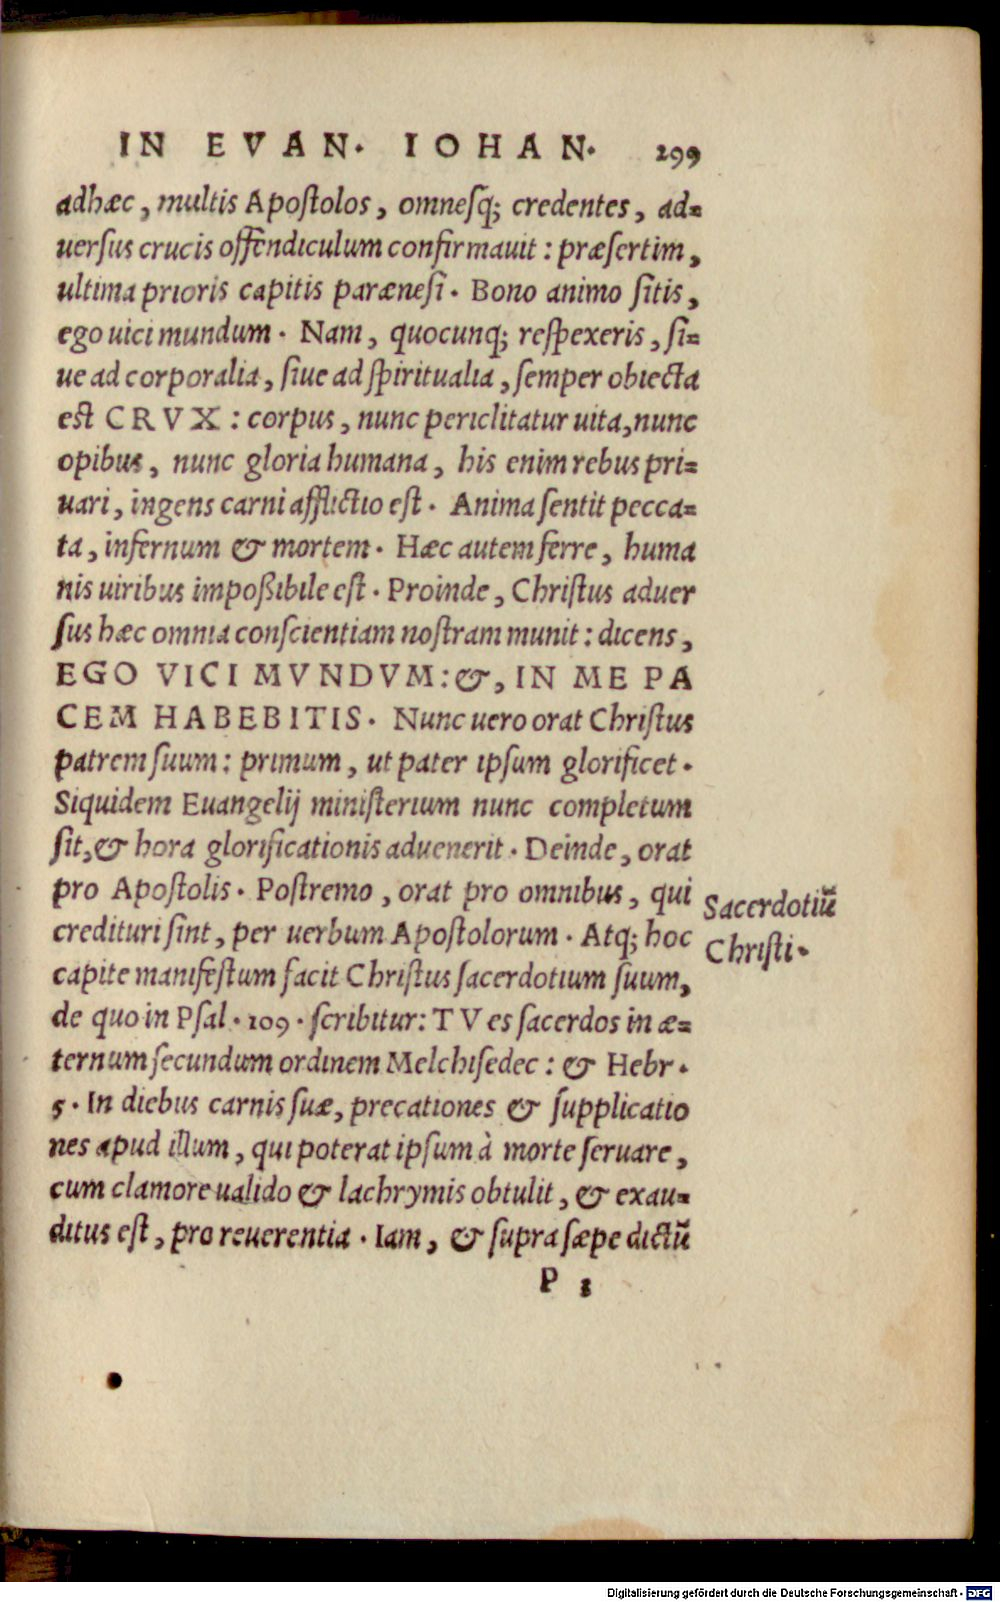 IN EVAN. IOHAN. 299
adhæc, multis Apoſtolos, omneſq; credentes, ad=
uerſus crucis offendiculum confirmauit : præſertim,
ultima prioris capitis parænesi. Bono animo ſitis,
ego uici mundum. Nam, quocunq; reſpexeris, ſi=
ue ad corporalia, ſiue ad ſpiritualia, ſemper obiecta
est CRVX : corpus, nunc periclitatur uita, nunc
opibus, nunc gloria humana, his enim rebus pri=
uari, ingens carni afflictio eſt. Anima ſentit pecca=
ta, infernum & mortem. Hæc autem ferre, huma
nis uiribus impoßibile eſt. Proinde, Chriſtus aduer
ſus hæc omnia conſcientiam noſtram munit : dicens,
EGO VICI MVNDVM: &, IN ME PA
CEM HABEBITIS. Nunc uero orat Chriſtus
patrem ſuum : primum, ut pater ipſum glorificet.
Siquidem Euangelij miniſterium nunc completum
ſit, & hora glorificationis aduenerit. Deinde, orat
pro Apoſtolis. Poſtremo, orat pro omnibus, qui
credituri ſint, per uerbum Apoſtolorum. Atq; hoc
capite manifeſtum facit Chriſtus ſacerdotium ſuum,
de quo in Pſal. 109. ſcribitur: TV es ſacerdos in æ=
ternum ſecundum ordinem Melchiſedec : & Hebr.
5. In diebus carnis ſuæ, precationes & ſupplicatio
nes apud illum, qui poterat ipſum à morte ſeruare,
cum clamore ualido & lachrymis obtulit, & exau=
ditus eſt, pro reuerentia. Iam, & ſupra ſæpe dictũ
P 3
Sacerdotiũ
Chriſti.
Digitalisierung gefördert durch die Deutsche Forschungsgemeinschaft - DFG